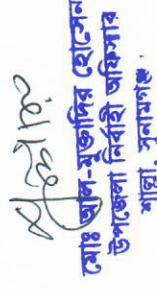 মোঃ আল-মুক্তাদির হোসেন
উপজেলা নির্বাহী অফিসার
শাল্লা, সুনামগঞ্জ।